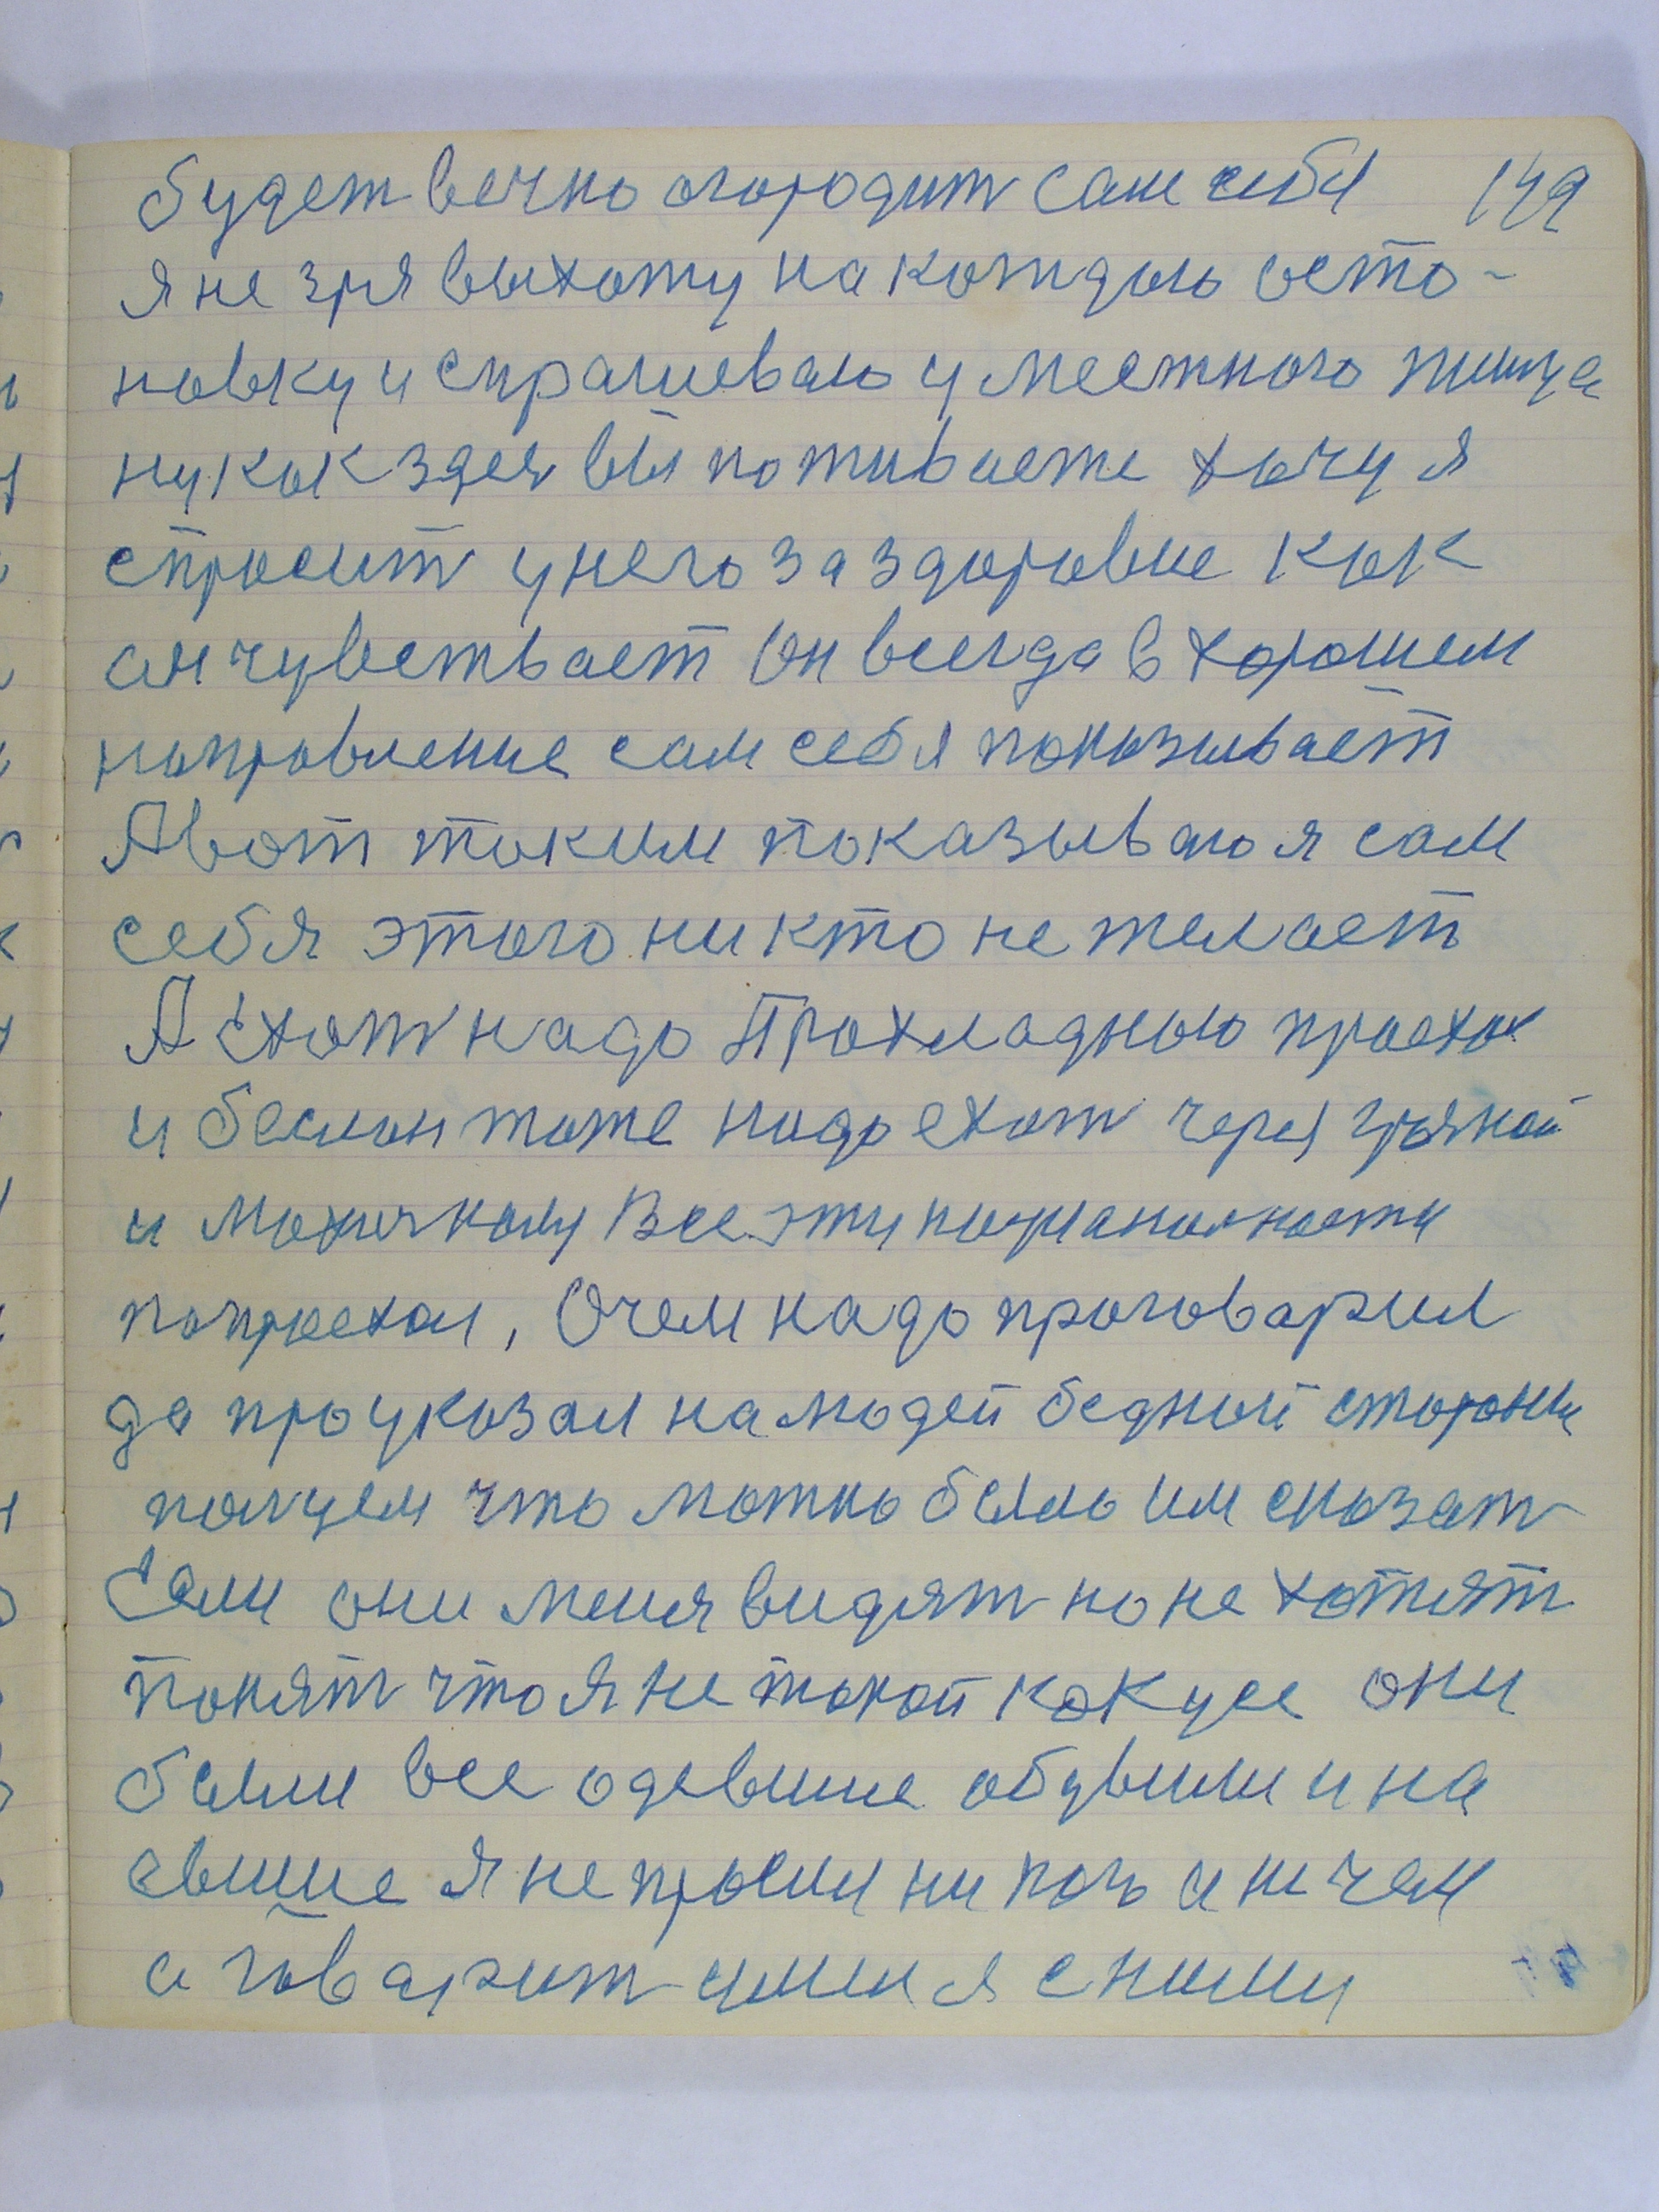 будет вечно огородит сам себя 149
я не зря выхожу на кождою осто-
новку и спрашеваю у местного жильца
ну кок здес вы поживаете хочу я
спросит у него за здоровие как
он чувствает Он всегда в хорошем
направление сам себя показывает
А вот таким показываю я сам
себя этого никто не желает
А Ехат надо Прохладною проехал
и беслан тоже надо ехат через грозной
и махичкалу Все эти
попроехал, Очем надо проговарил
да проуказал на людей бедной стороны
чтo можно было им сказат
Если они меня видят но не хотят
понят что я не такой как усе они
были все одевшие обувшии и на
евшие я не просил ни поч и ни чем
а говарит умил я с ними